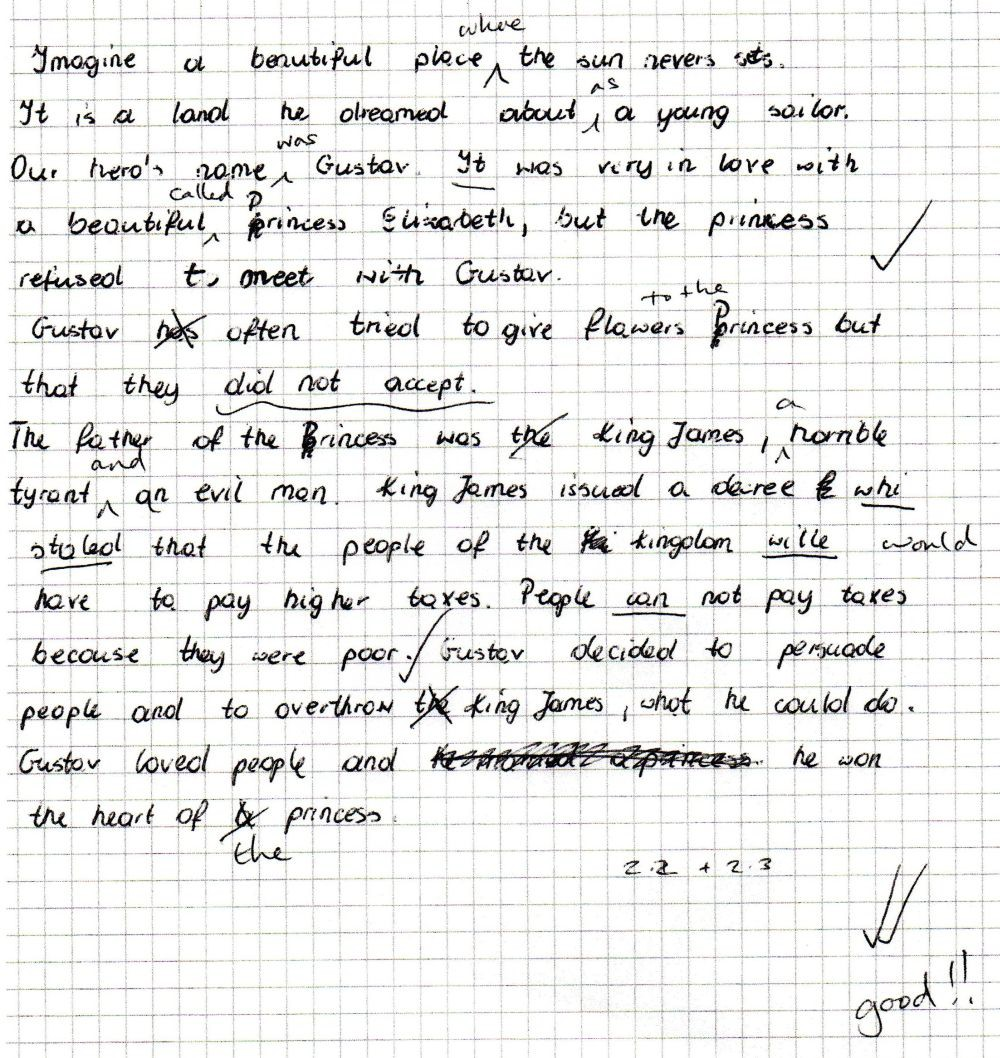 where
Imagine a beautiful place the sun nevers sets.
as
It is a land he dreamed about a young sailor.
was
Our hero's name Gustav. It was very in love with
called P
a beautiful princess Elizabeth, but the princess
refused to meet with Gustav.
to the
Gustav has often tried to give flowers Princess but
that they did not accept.
a
The father of the Princess was the King James, horrible
and
tyrant an evil man. King James issued a decree whi
stated that the people of the kingdom wille would
have to pay higher taxes. People can not pay taxes
becouse they were poor. Gustav decided to persuade
people and to overthrow the King James, what he could do.
Gustav loved people and he won
the heart of princess.
the
2.2 + 2.3
good!!